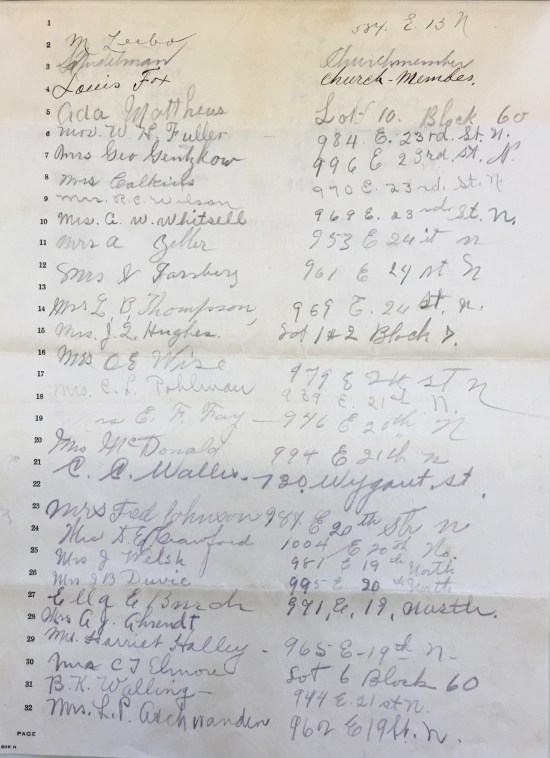 1
584. E. 13 N
2 M. Leibo
3 Churchmember
4 Louis Fox Church-Member.
5 Ada Mattheus Lot 10. Block 60
6 Mrs. W. H. Fuller 984 E. 23rd. St. N.
7 Mrs Geo Gentzkow 996 E 23rd St. N.
8 Mrs Calkins 970 E. 23rd. St. N
9 Mrs. R. C. Wilson
10 Mrs. A. W. Whitsell 969 E. 23rd St. N.
11 Mrs A Zeller 953 E 24 st N
12 961 E 24 st N
13
14 Mrs L. B. Thompson, 969 E. 24 St. N.
15 Mrs. J. L. Hughes. Lot 1 & 2 Block 7.
16 Mrs O E Wise
17 979 E 24 St N
18 Mrs. C. L. Pohlman 939 E. 21st N.
19 E. F. Fay — 946 E 20th N
20 Mrs McDonald 994 E 21th N
21
22 C. C. Wallis - 730. Wygant. St.
23 Mrs Fed Johnson 984 E 20th Str N
24 Mrs D. E. Crawford 1004 E 20th No.
25 Mrs J Welsh 981 E 19th North
26 Mrs J B 995 E 20 North
27 Ella E 991, E, 19, North.
28 Mrs A. J. Ahrendt
29 Harriet Halley - 965 E - 19th N -
30 Mrs C T Elmore Lot 6 Block 60
31 B. K. Walling — 944 E. 21st N.
32 Mrs. L. P. 962 E 19 St. N.
PAGE